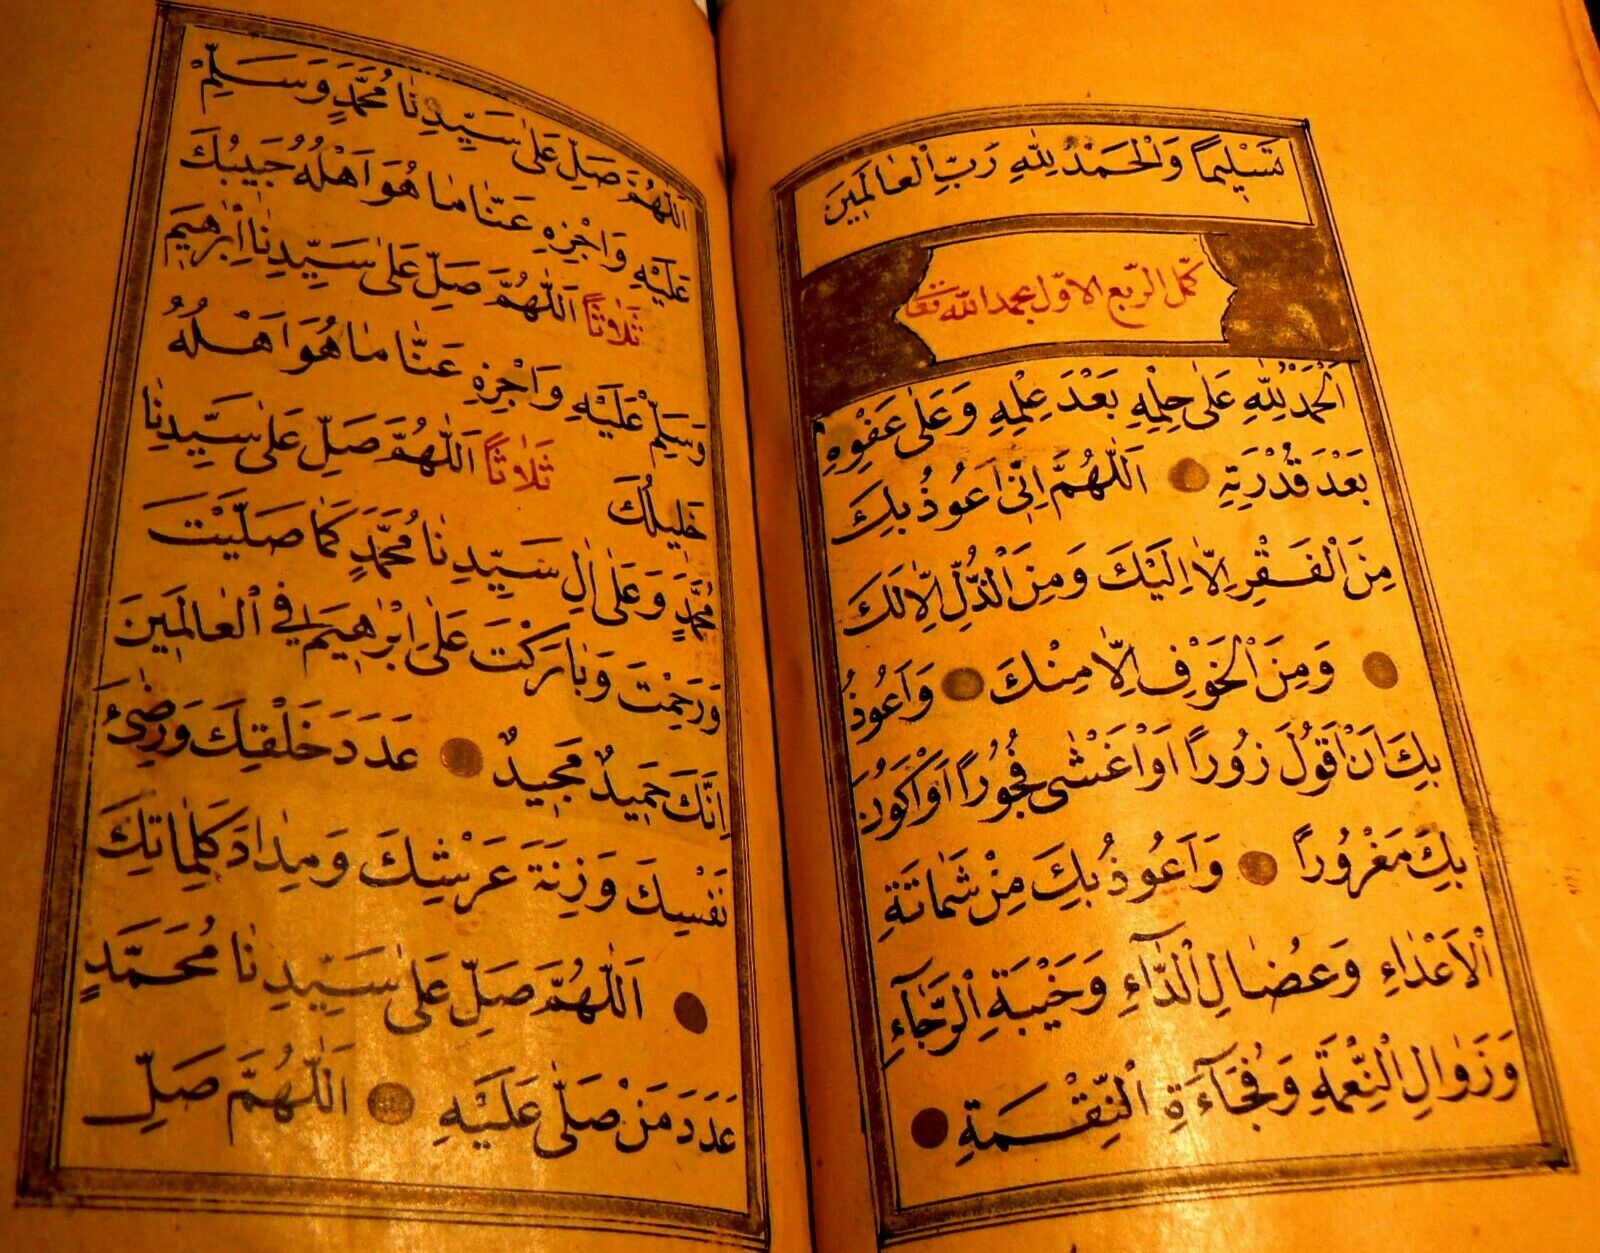 تَسْلِيمًا وَالْحَمْدُ لِلّٰهِ رَبِّ الْعَالَمِينَ
كمل الربع الاول بحمد الله تعا
اَلْحَمْدُ لِلّٰهِ عَلٰى حِلْمِهِ بَعْدَ عِلْمِهِ وَعَلٰى عَفْوِهِ
بَعْدَ قُدْرَتِهِ اَللّٰهُمَّ اِنِّي اَعُوذُ بِكَ
مِنَ الْفَقْرِ اِلَّا اِلَيْكَ وَمِنَ الذُّلِّ اِلَّا لَكَ
وَمِنَ الْخَوْفِ اِلَّا مِنْكَ وَاَعُوذُ
بِكَ اَنْ اَقُولَ زُورًا اَوْ اَغْشٰى فُجُورًا اَوْ اَكُونَ
بِكَ مَغْرُورًا وَاَعُوذُ بِكَ مِنْ شَمَاتَةِ
الْاَعْدَاءِ وَعُضَالِ الدَّاءِ وَخَيْبَةِ الرَّجَاءِ
وَزَوَالِ النِّعْمَةِ وَفُجَاءَةِ النِّقْمَةِ
اَللّٰهُمَّ صَلِّ عَلٰى سَيِّدِنَا مُحَمَّدٍ وَسَلِّمْ
عَلَيْهِ وَاجْزِهِ عَنَّا مَا هُوَ اَهْلُهُ حَبِيبُكَ
ثَلَاثًا اَللّٰهُمَّ صَلِّ عَلٰى سَيِّدِنَا اِبْرٰهِيمَ
وَسَلِّمْ عَلَيْهِ وَاجْزِهِ عَنَّا مَا هُوَ اَهْلُهُ
خَلِيلُكَ ثَلَاثًا اَللّٰهُمَّ صَلِّ عَلٰى سَيِّدِنَا
مُحَمَّدٍ وَعَلٰى اٰلِ سَيِّدِنَا مُحَمَّدٍ كَمَا صَلَّيْتَ
وَرَحِمْتَ وَبَارَكْتَ عَلٰى اِبْرٰهِيمَ فِي الْعَالَمِينَ
اِنَّكَ حَمِيدٌ مَجِيدٌ عَدَدَ خَلْقِكَ وَرِضٰىءَ
نَفْسِكَ وَزِنَةَ عَرْشِكَ وَمِدَادَ كَلِمَاتِكَ
اَللّٰهُمَّ صَلِّ عَلٰى سَيِّدِنَا مُحَمَّدٍ
عَدَدَ مَنْ صَلّٰى عَلَيْهِ اَللّٰهُمَّ صَلِّ